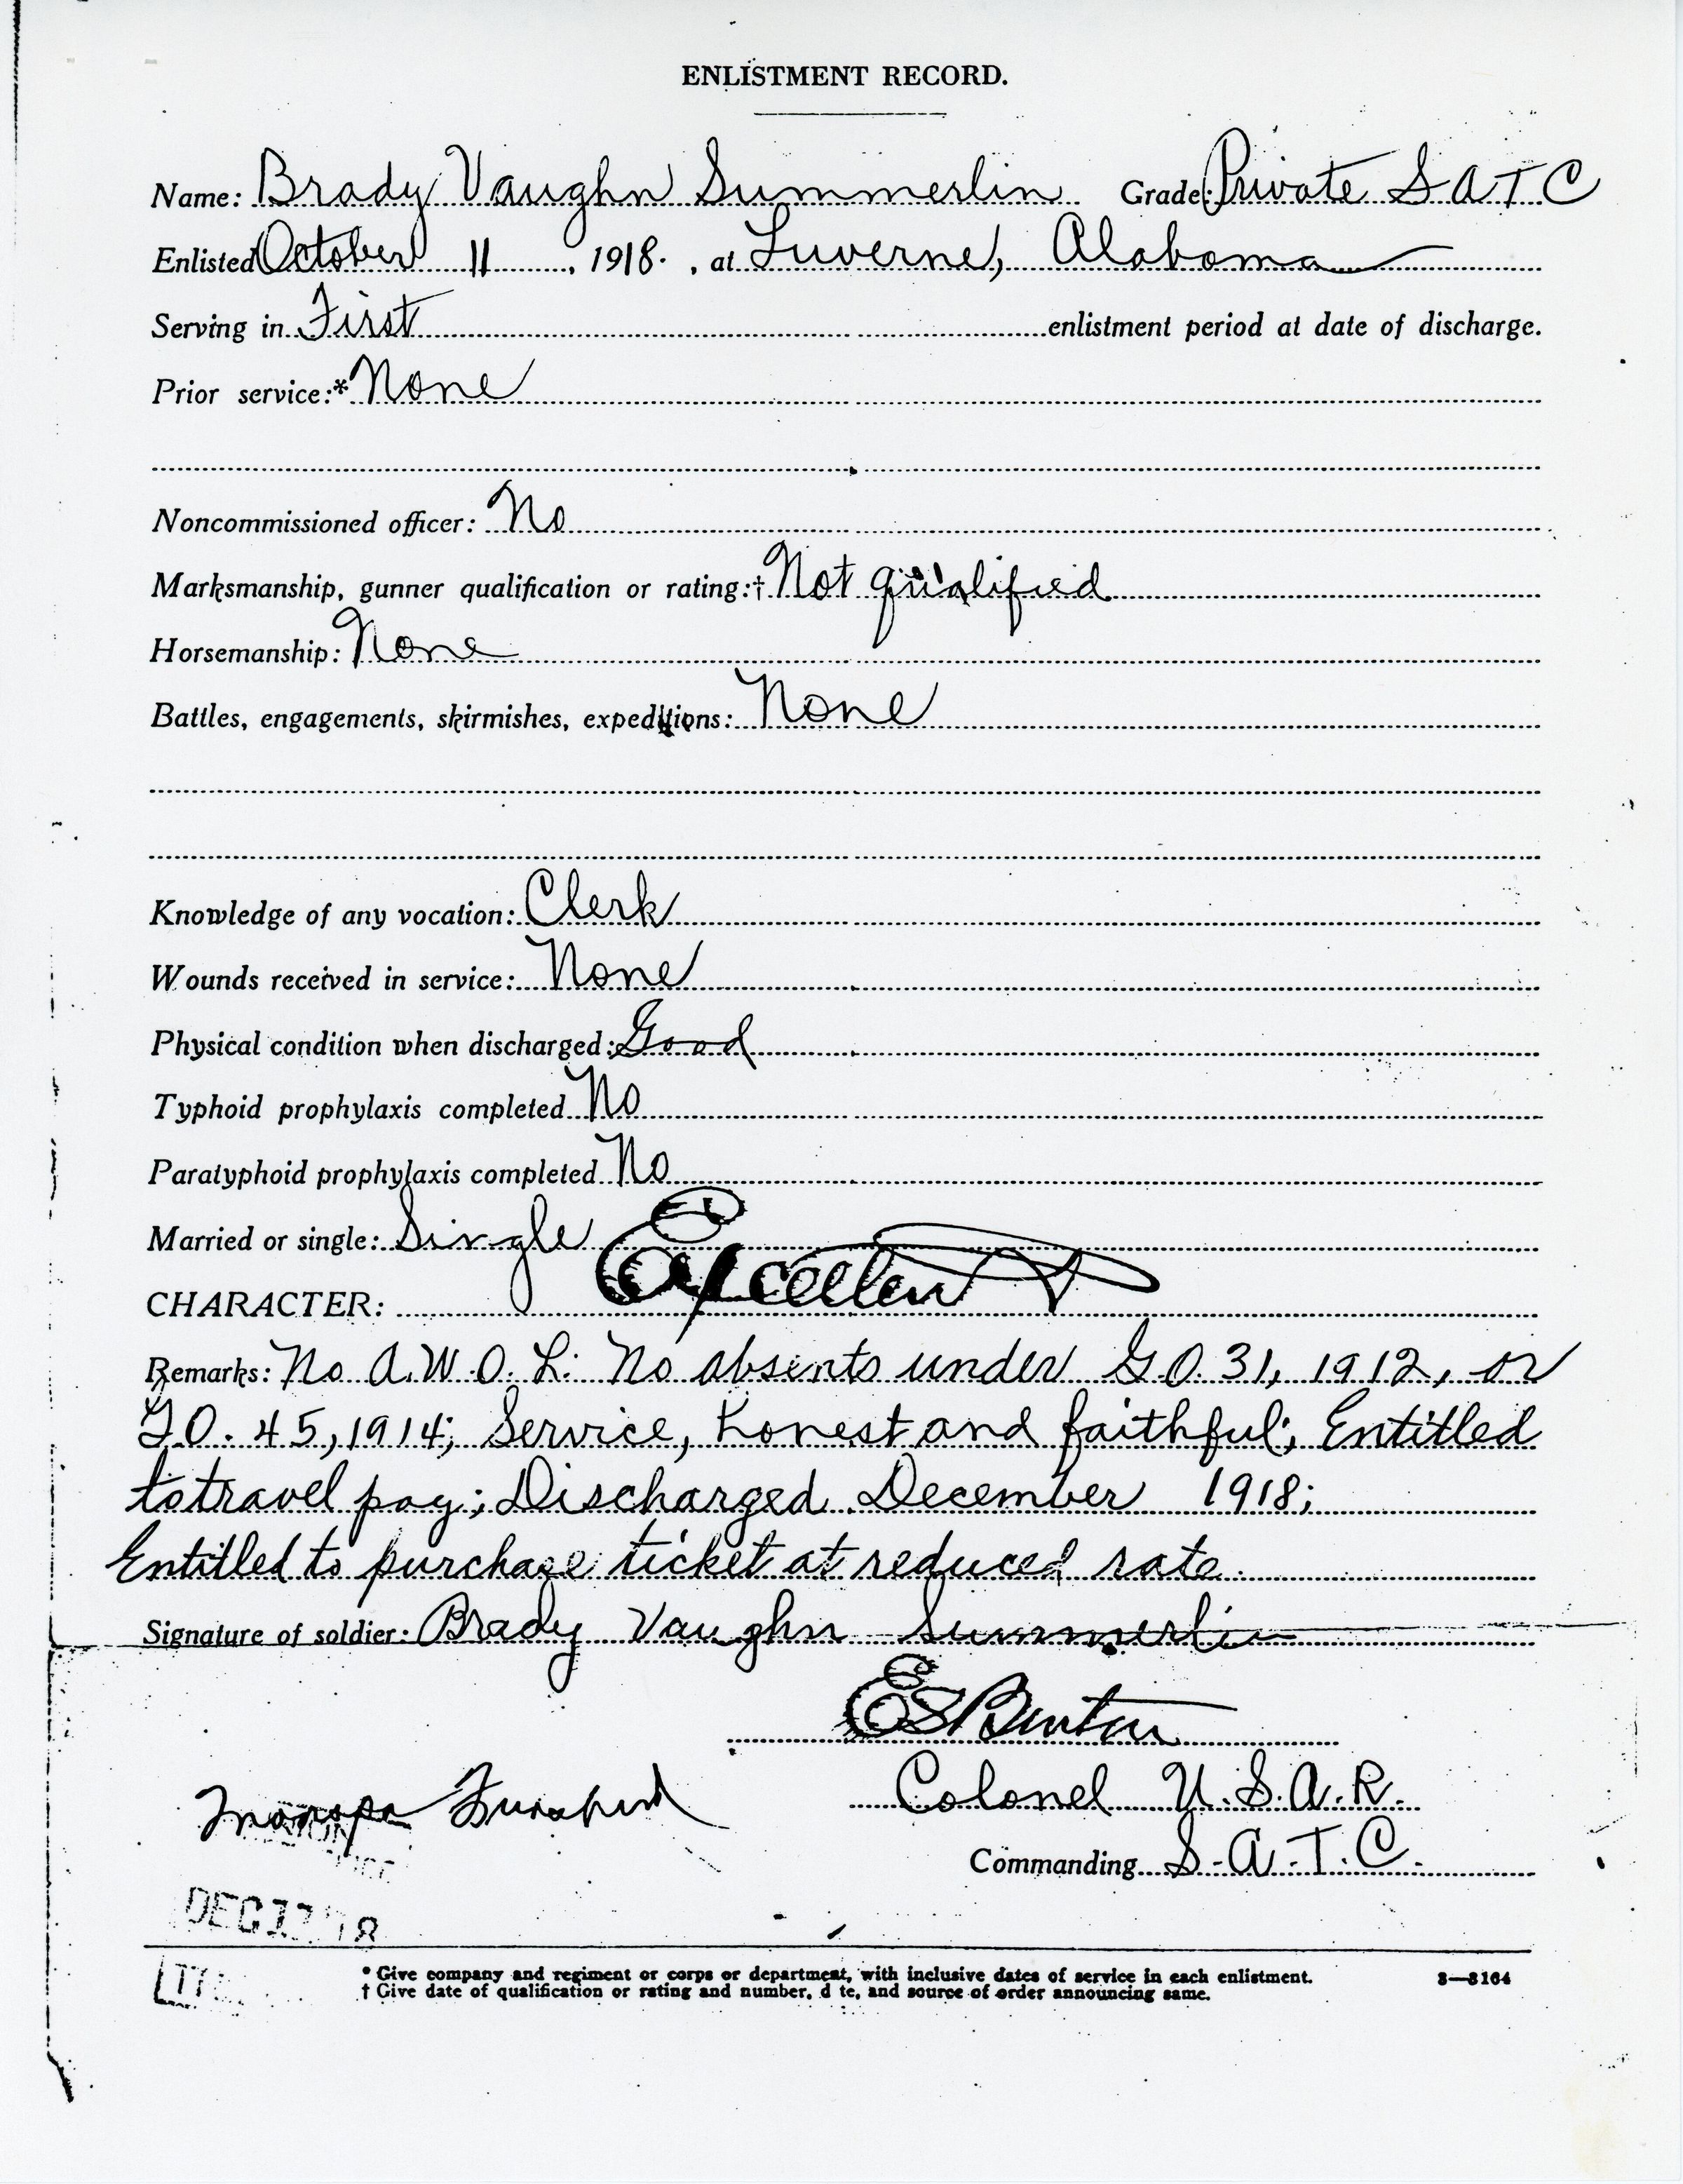 ENLISTMENT RECORD.
Name: Brady Vaughn Summerlin Grade: Private S A T C
Enlisted October 11, 1918. , at Luverne, Alabama
Serving in First enlistment period at date of discharge.
Prior service:* None
Noncommissioned officer: No
Marksmanship, gunner qualification or rating:† Not qualified
Horsemanship: None
Battles, engagements, skirmishes, expeditions: None
Knowledge of any vocation: Clerk
Wounds received in service: None
Physical condition when discharged: Good
Typhoid prophylaxis completed No
Paratyphoid prophylaxis completed No
Married or single: Single
CHARACTER: Excellent
Remarks: No A.W.O.L. No absents under G.O. 31, 1912, or
G.O. 45, 1914; Service, honest and faithful; Entitled
to travel pay; Discharged December 1918;
Entitled to purchase ticket at reduced rate.
Signature of soldier: Brady Vaughn Summerlin
E S Benton
Colonel U.S.A.R.
Commanding S.A.T.C.
* Give company and regiment or corps or department, with inclusive dates of service in each enlistment. 3—3164
† Give date of qualification or rating and number, d te, and source of order announcing same.